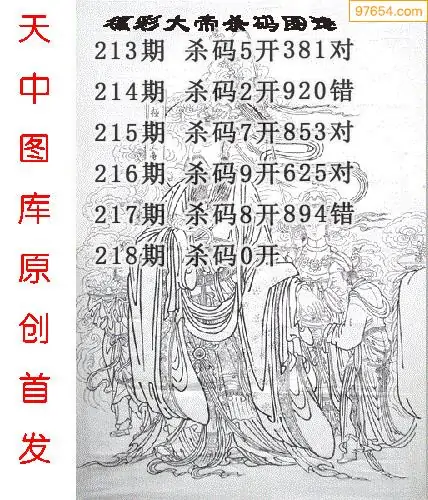 97654.com
福彩大帝杀码图迷
213期 杀码5开381对
214期 杀码2开920错
215期 杀码7开853对
216期 杀码9开625对
217期 杀码8开894错
218期 杀码0开
天中图库原创首发